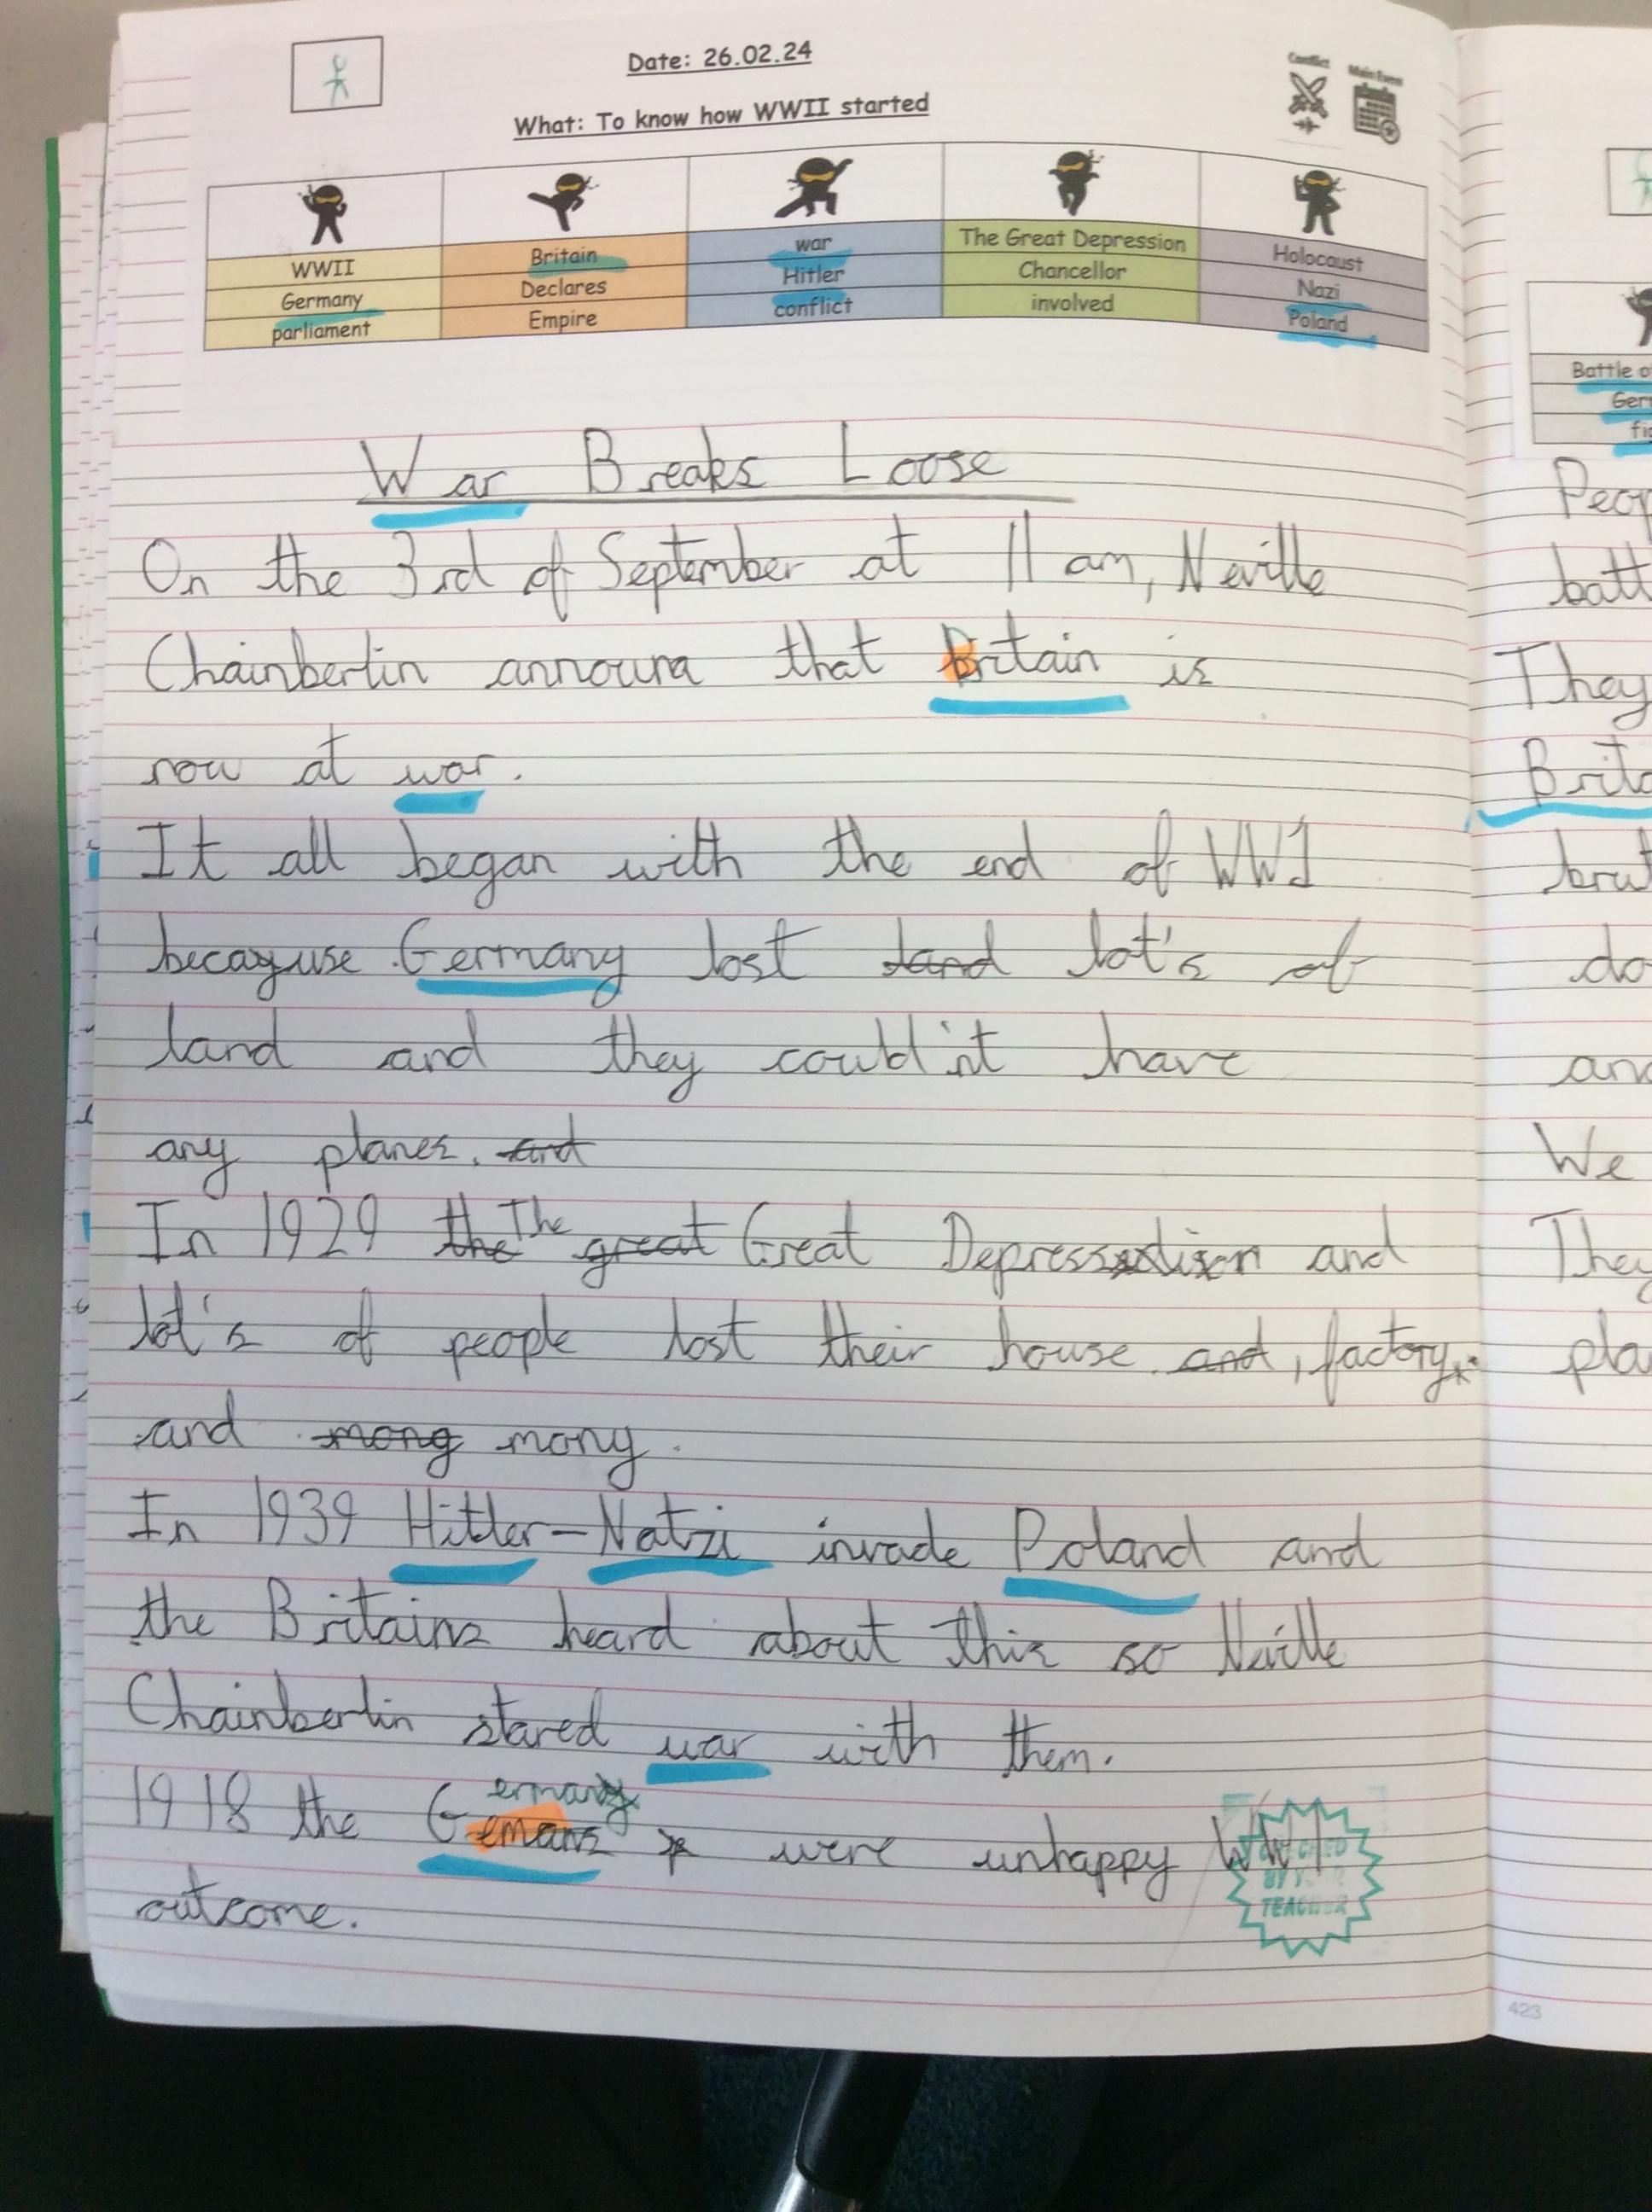 Date: 26.02.24
Conflict
Main Event
What: To know how WWII started
WWII
Germany
parliament
Britain
Declares
Empire
war
Hitler
conflict
The Great Depression
Chancellor
involved
Holocaust
Nazi
Poland
War Breaks Loose
On the 3rd of September at 11 am, Neville
Chainberlin announa that Britain is
now at war.
It all began with the end of WW1
becayuse Germany lost land lot's of
land and they could'nt have
any planes. and
In 1929 the The great Great Depression and
lot's of people lost their house and, factory,
and mong mony.
In 1939 Hitler-Natzi invade Poland and
the Britains heard about this so Neville
Chainberlin stared war with them.
1918 the Gemans ermany were unhappy WW1
outcome.
BY
TEACHER
423
Battle o
Ger
fi
Peop
batt
They
Brita
brut
do
and
We
They
pla